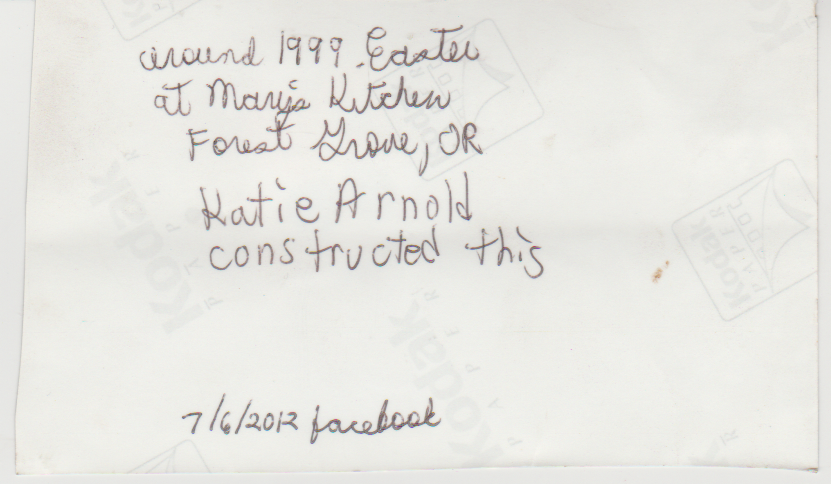 around 1999 Easter
at Mary's Kitchen
Forest Grove, OR
Katie Arnold
constructed this
7/6/2012 facebook
Kodak
PAPER
Kodak
PAPER
Kodak
PAPER